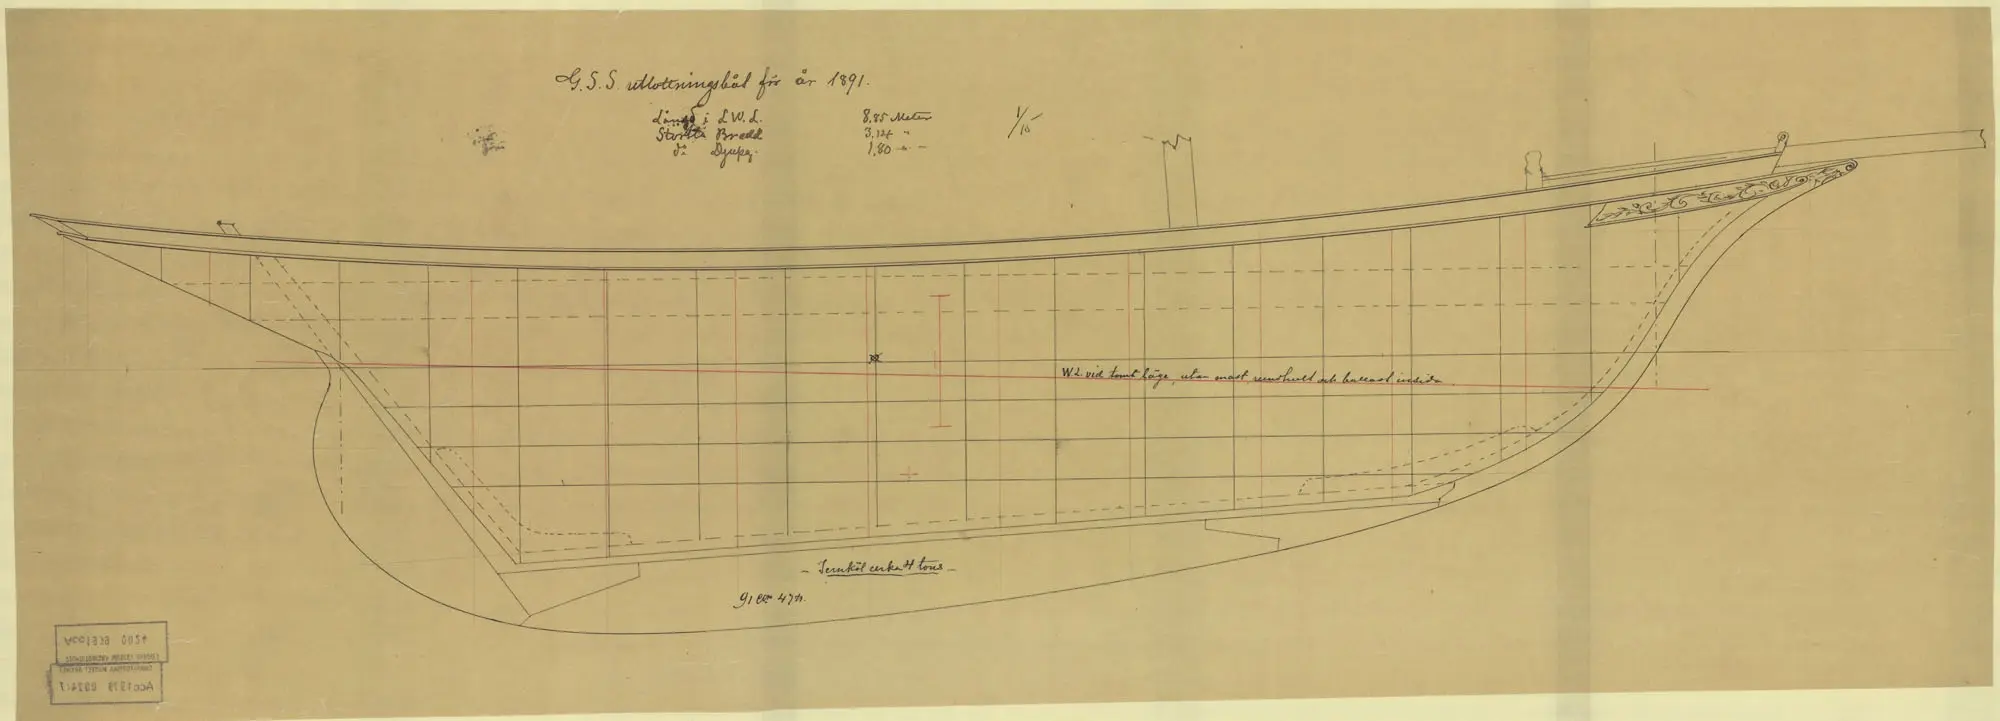 G.S.S. utlottningsbåt för år 1891.
Längd i L.W.L. 8,85 Meter
Största Bredd 3,124 "
Do Djupg. 1,80 " -
1/15
W.L. vid tomt läge, utan mast, rundhult och ballast insida
- Jernköl cirka 4 tons -
Acc 1939 0024
Acc 1939